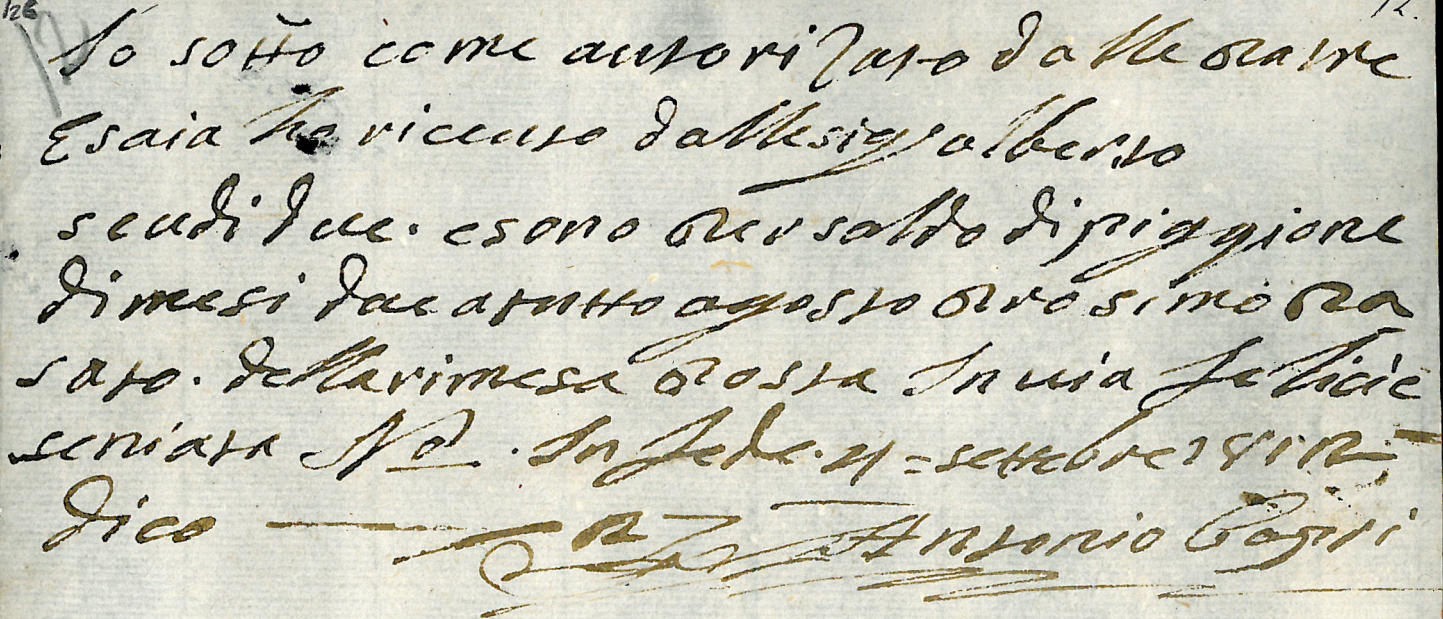 126 12.
Io sotto come autorizato dalle patre
Esaia ho riceuto dalle sigr alberto
scudi due. e sono per saldo di piggione
di mesi due a tutto agosto prosimo pa
sato. della rimesa posta In uia felicie
seniata No. In fede. 21 = settebre 181
dico Antonio